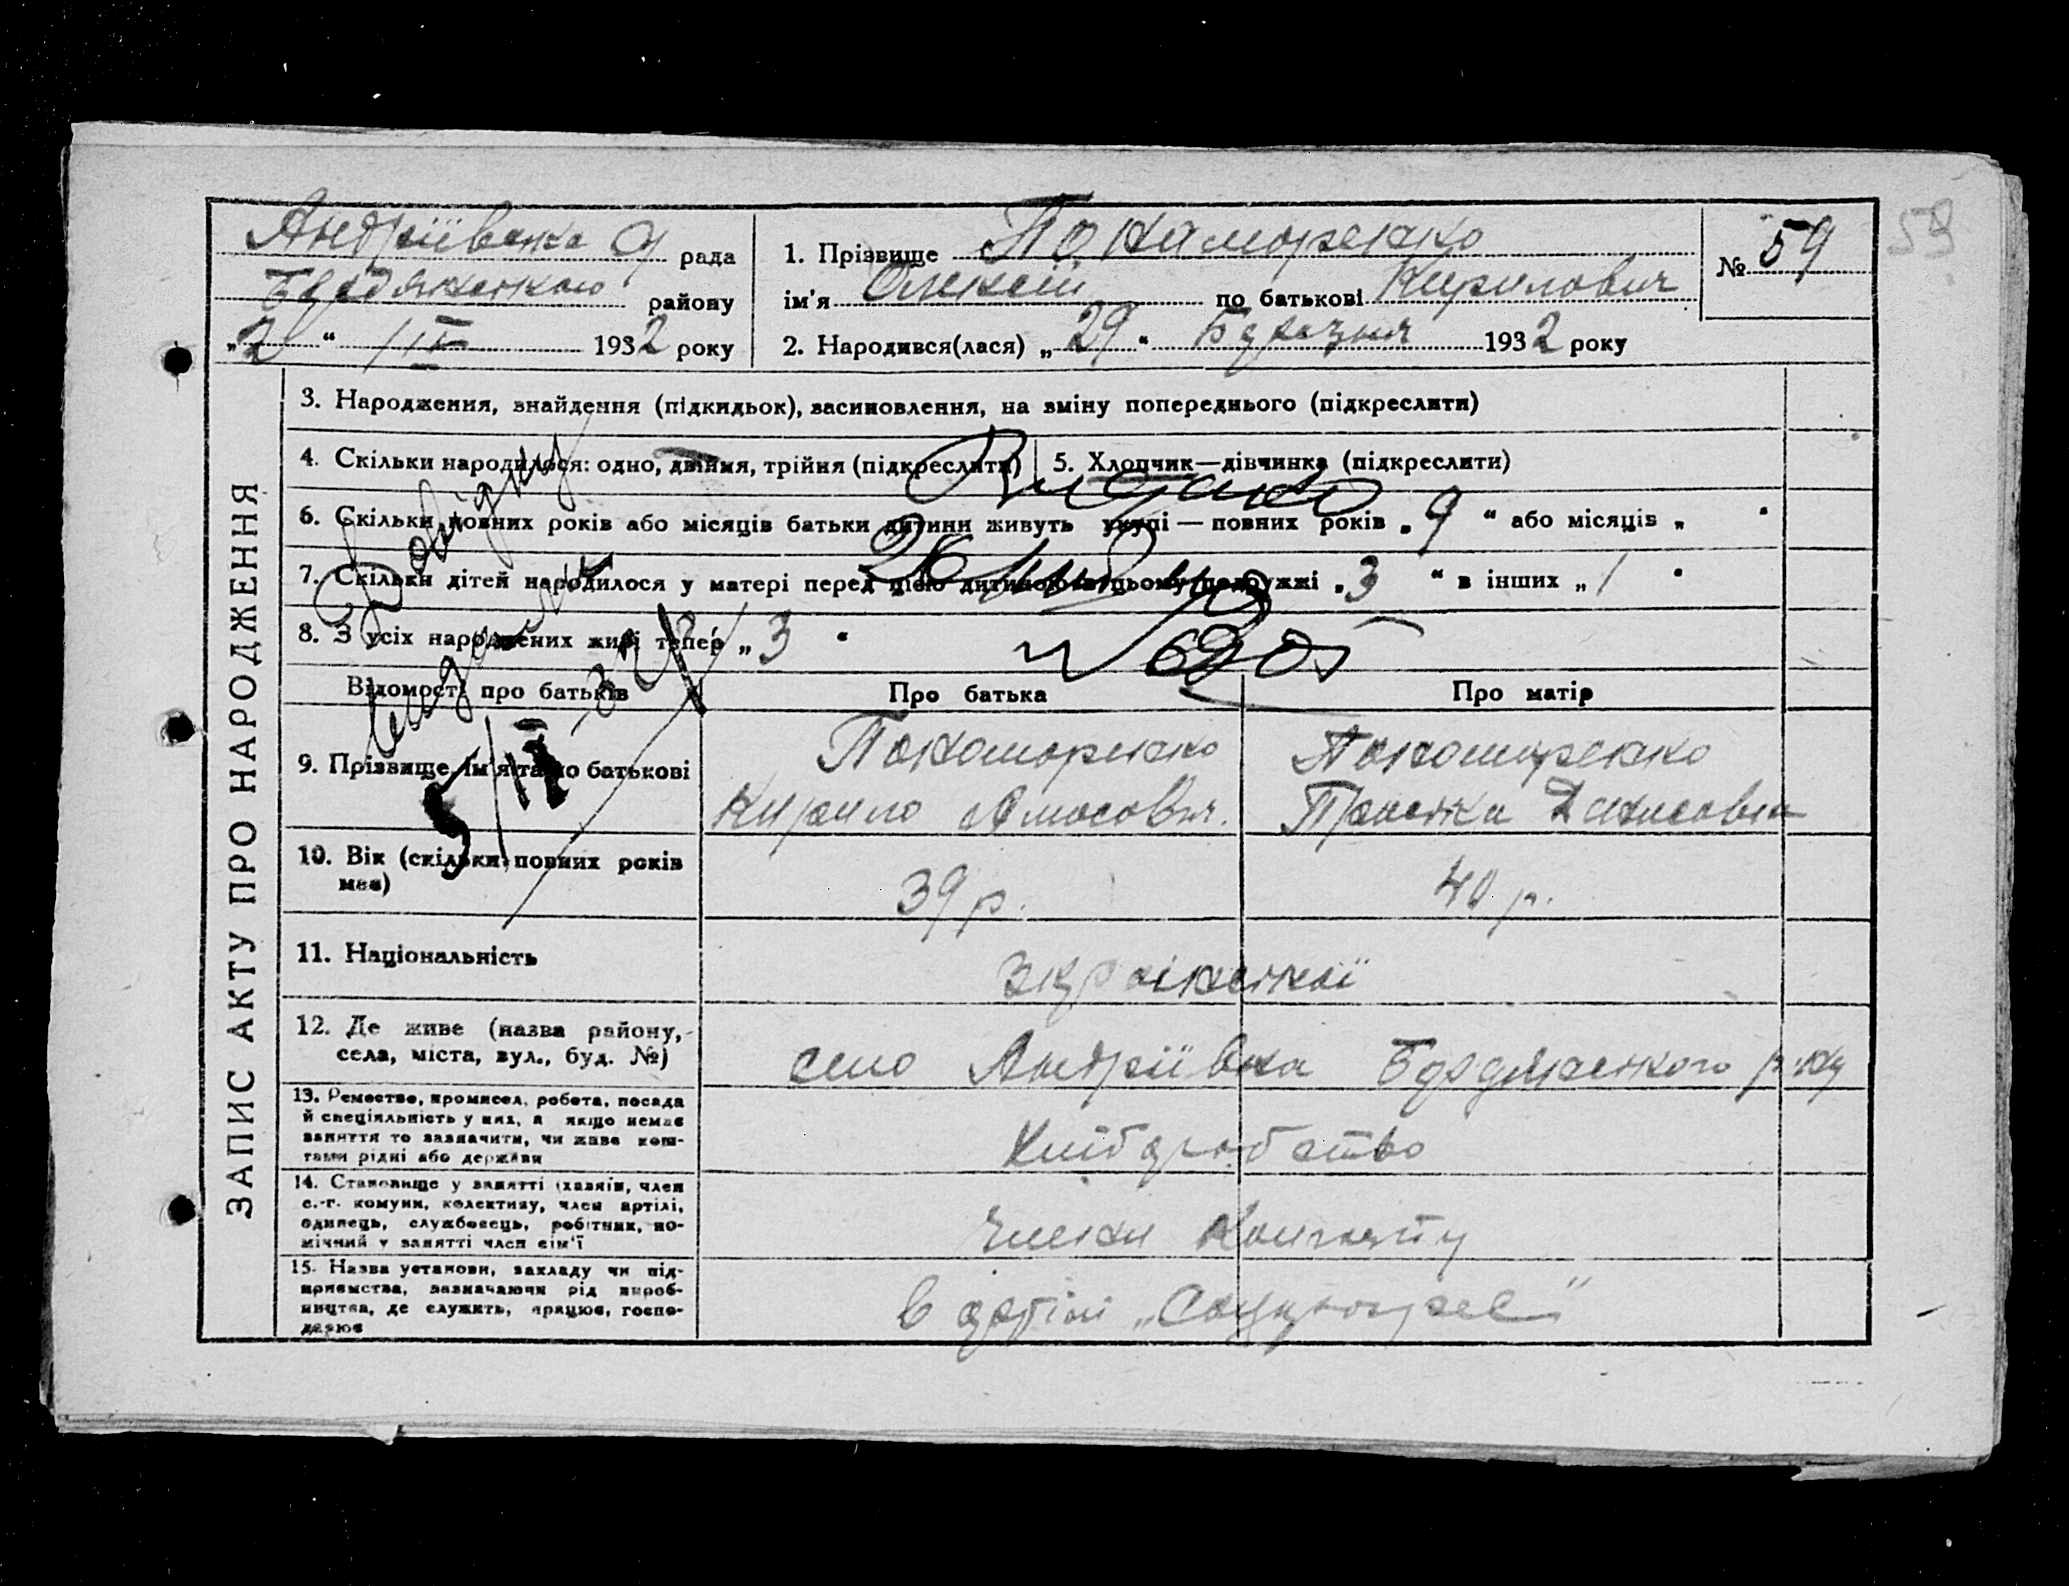 Андріївська рада
Бердянського району
„2“ IV 1932 року
1. Прізвище Понаморенко
ім'я Олексій по батькові Кирилович
2. Народився(лася) „29“ Березня 1932 року
№ 59
59
ЗАПИС АКТУ ПРО НАРОДЖЕННЯ
3. Народження, знайдення (підкидьок), засиновлення, на зміну попереднього (підкреслити)
4. Скільки народилося: одно, двійня, трійня (підкреслити)
5. Хлопчик—дівчинка (підкреслити)
6. Скільки повних років або місяців батьки дитини живуть укупі — повних років „9“ або місяців „ “
7. Скільки дітей народилося у матері перед цією дитиною в цьому подружжі „3“ в інших „1“
8. З усіх народжених живі тепер „3“
Довідку
видано
5/IV-32
Видано
Відомості про батьків
Про батька
Про матір
9. Прізвище, ім'я та по батькові
Понаморенко
Кирило Амосович.
Понаморенко
Денисовна
10. Вік (скільки повних років
має)
39 р.
40 р.
11. Національність
12. Де живе (назва району,
села, міста, вул., буд. №)
село Андріївка Бердянського р-ну
13. Ремество, промисел, робота, посада
й спеціяльність у них, а якщо немає
заняття то зазначити, чи живе кош-
тами рідні або держави
Хліборобство
14. Становище у занятті (хазяїн, член
с.-г. комуни, колективу, член артілі,
одинець, службовець, робітник, по-
мічний у занятті член сім'ї
Члени
15. Назва установи, закладу чи під-
приємства, зазначаючи рід вироб-
ництва, де служить, працює, госпо-
дарює
в артілі